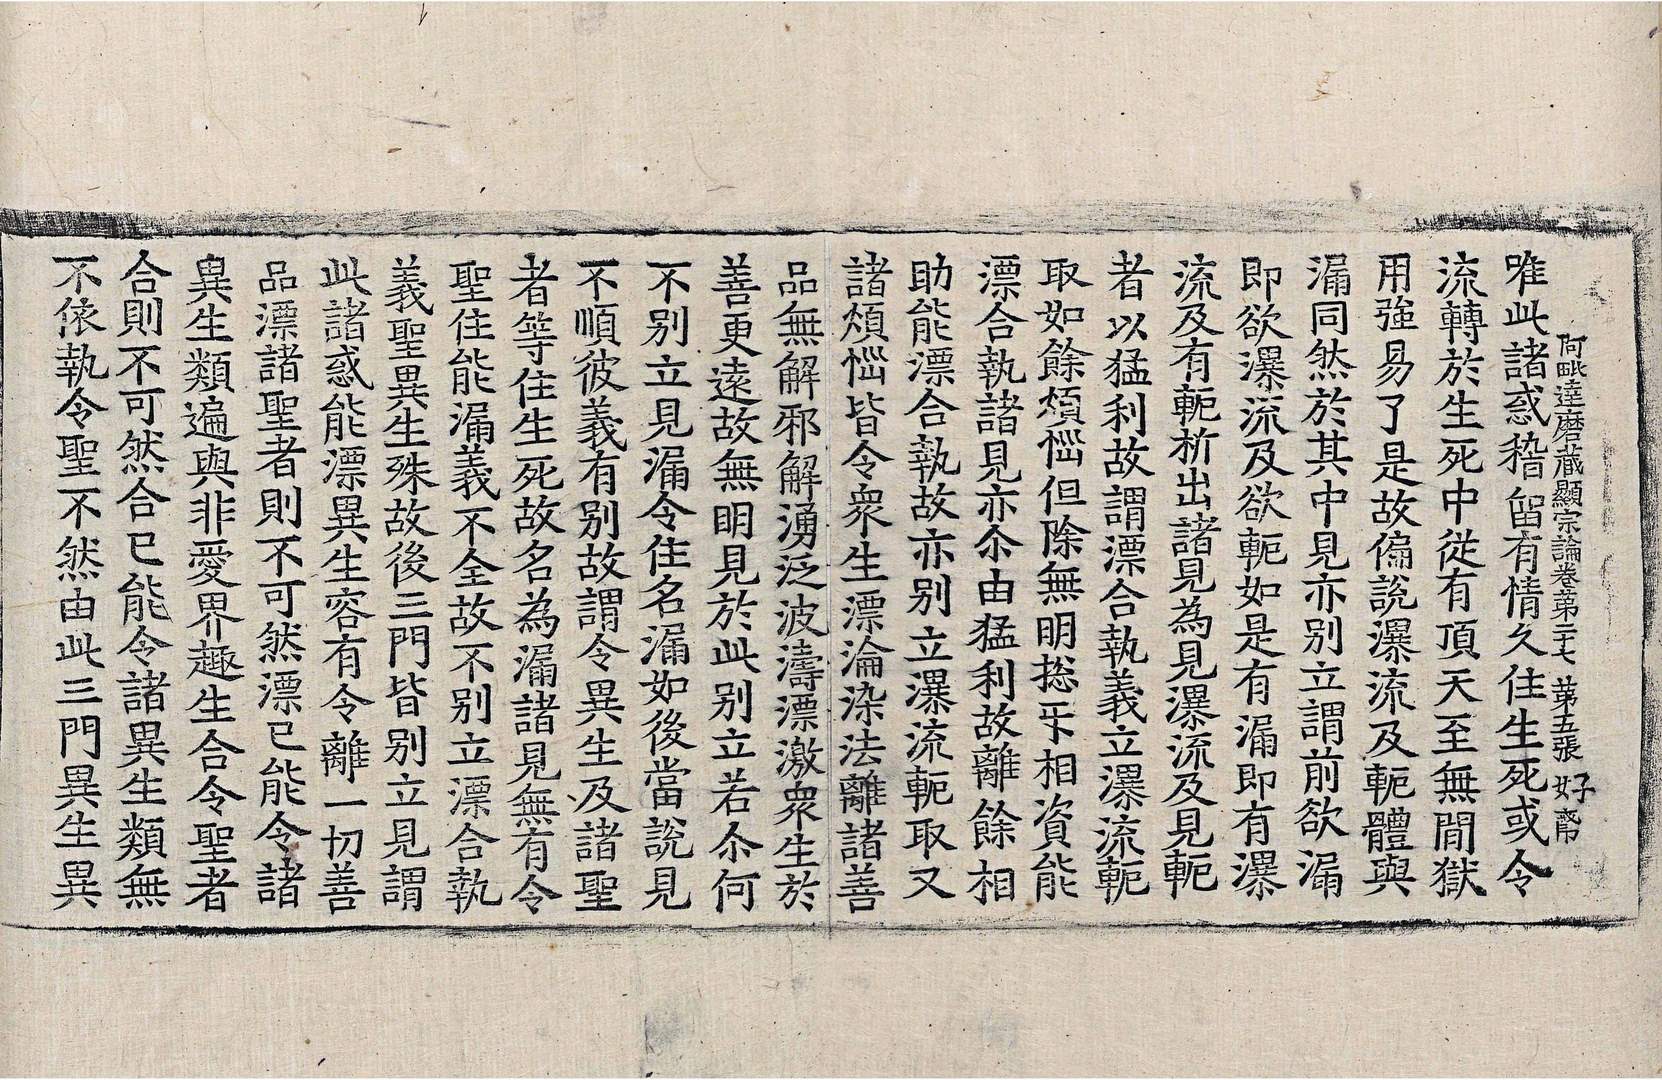 阿毗達磨藏顯宗論卷第二十七 第五張 好
唯此諸惑稽留有情久住生死或令
流轉於生死中從有頂天至無間獄
用強易了是故偏說瀑流及軛體與
漏同然於其中見亦别立謂前欲漏
即欲瀑流及欲軛如是有漏即有瀑
流及有軛析出諸見為見瀑流及見軛
者以猛利故謂漂合執義立瀑流軛
取如餘煩惱但除無明揔㸦相資能
漂合執諸見亦尒由猛利故離餘相
助能漂合執故亦别立瀑流軛取又
諸煩惱皆令衆生漂淪染法離諸善
品無解邪解湧泛波濤漂激衆生於
善更遠故無明見於此别立若尒何
不别立見漏令住名漏如後當說見
不順彼義有别故謂令異生及諸聖
者等住生死故名為漏諸見無有令
聖住能漏義不全故不别立漂合執
義聖異生殊故後三門皆别立見謂
此諸惑能漂異生容有令離一切善
品漂諸聖者則不可然漂已能令諸
異生類遍與非愛界趣生合令聖者
合則不可然合已能令諸異生類無
不依執令聖不然由此三門異生異